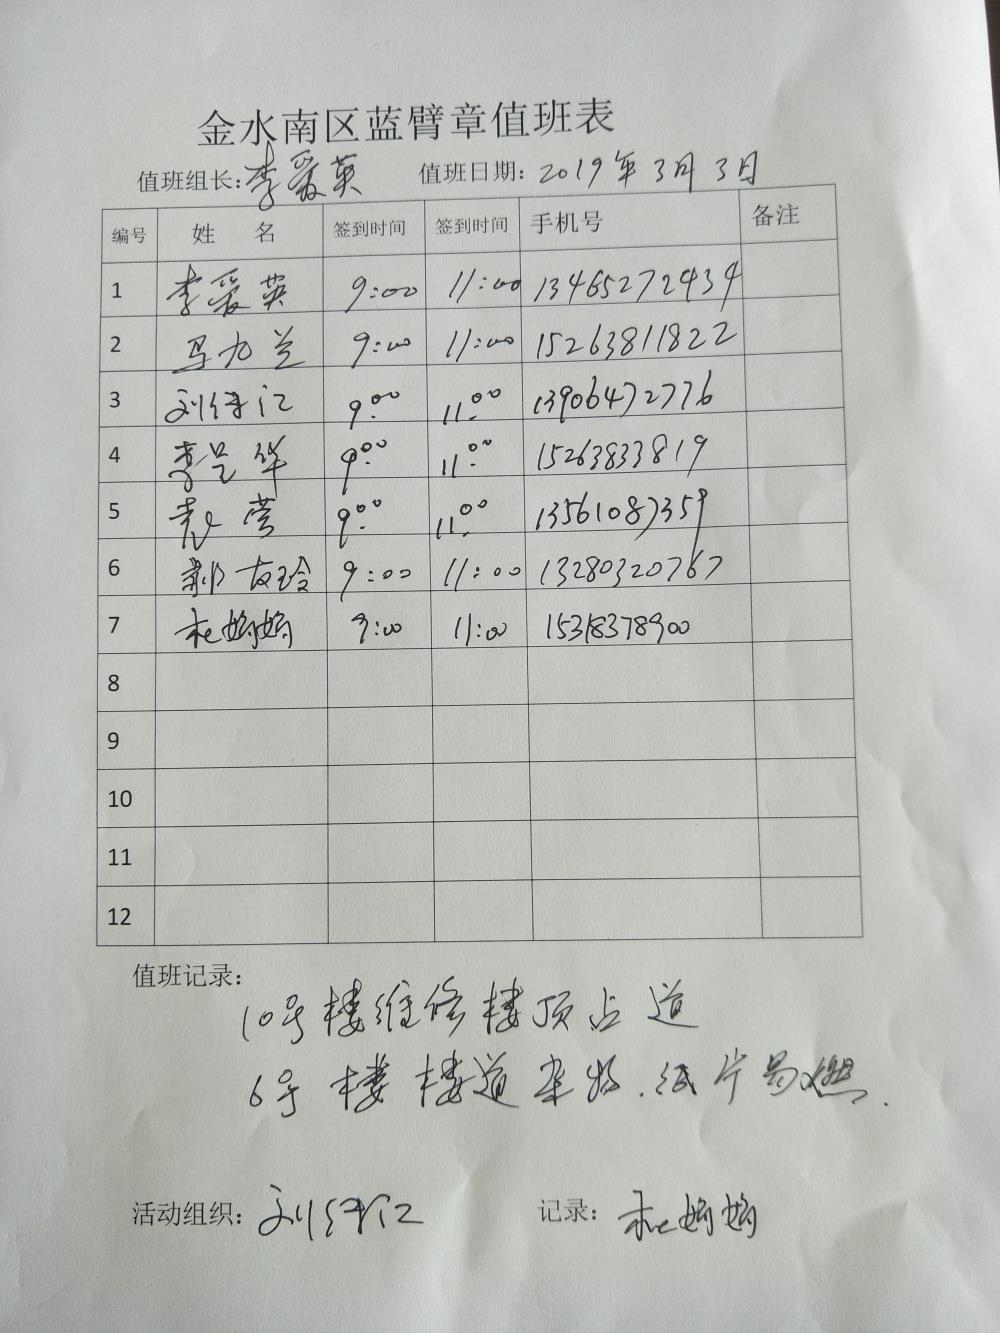 金水南区蓝臂章值班表
值班组长:李爱英 值班日期:2019年3月3日
编号 姓 名 签到时间 签到时间 手机号 备注
1 李爱英 9:00 11:00 13465272434
2 马九兰 9:00 11:00 15263811822
3 刘 江 9:00 11:00 13906472776
4 李 华 9:00 11:00 15263833819
5 9:00 11:00 13561087359
6 郭友玲 9:00 11:00 13280320767
7 杜娟娟 9:00 11:00 15318378900
8
9
10
11
12
值班记录:
10号楼维修楼顶占道
6号楼楼道杂物.纸片易燃.
活动组织:刘 江 记录:杜娟娟